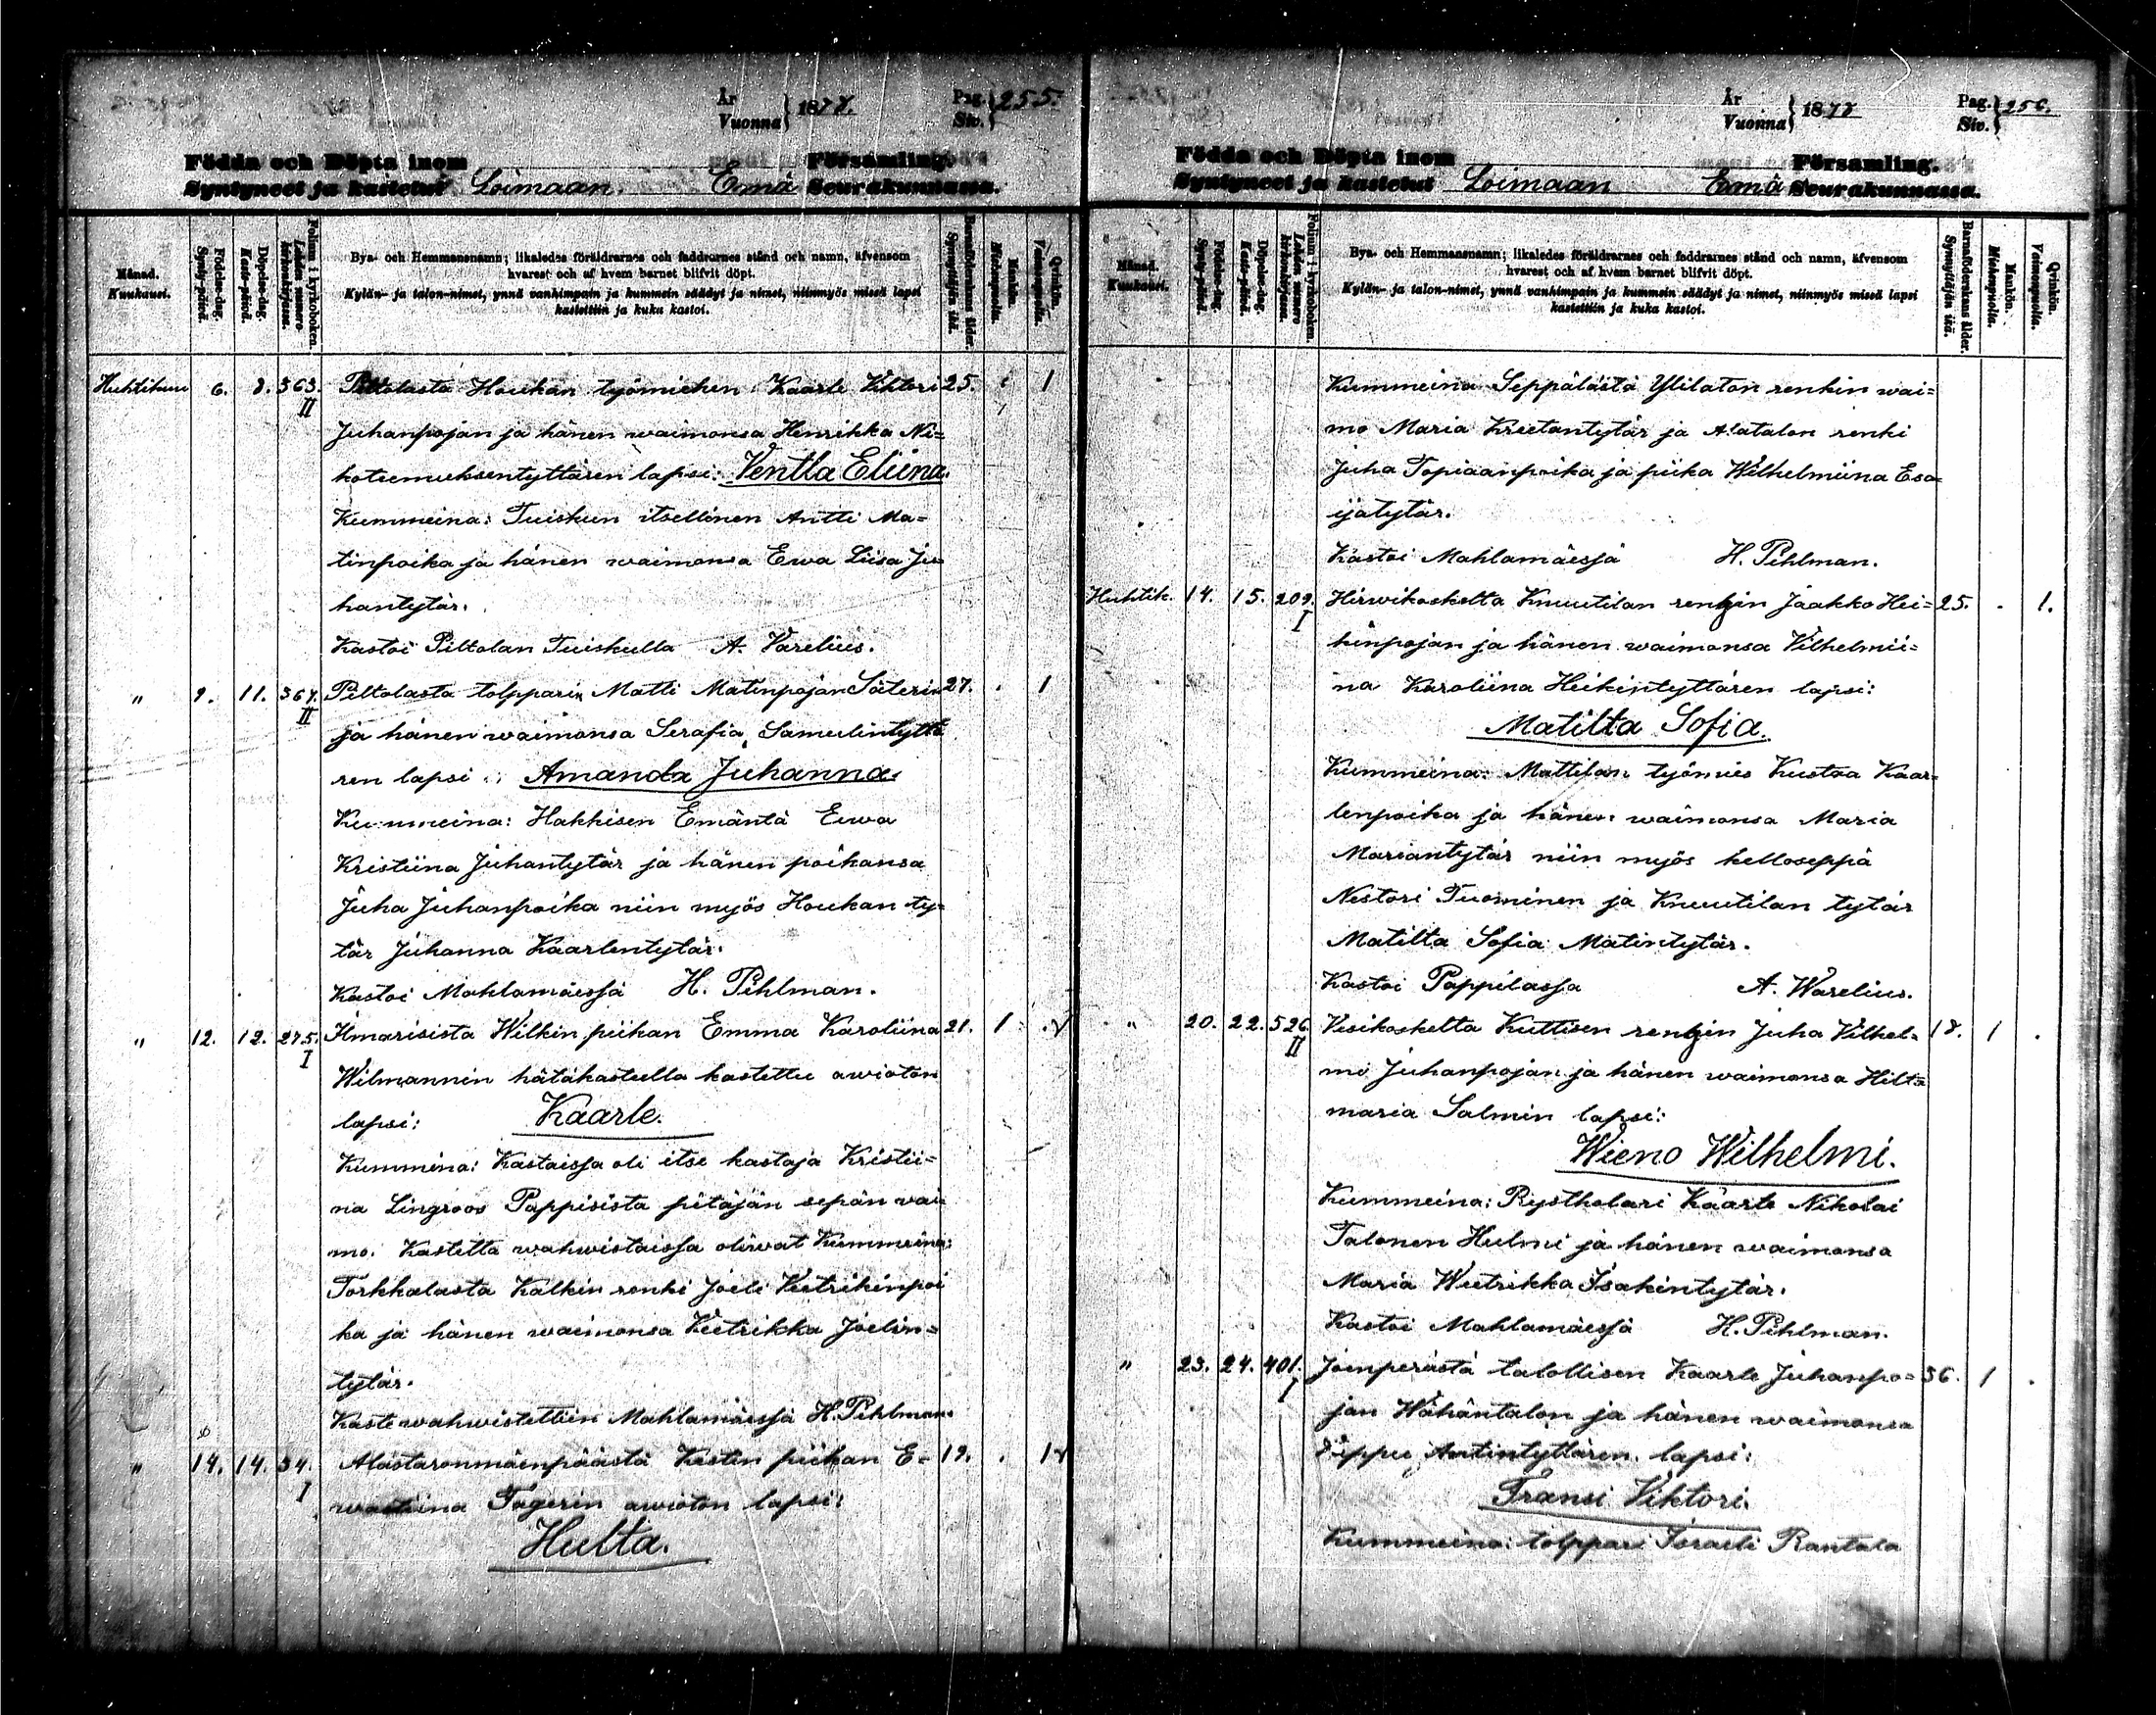 År
Vuonna } 1878.
Pag.
Siv. } 255.
Födda och Döpta inom
Syntyneet ja kastetut Loimaan Emä
Församling.
Seurakunnassa.
Månad.
Kuukausi.
Födelse-dag.
Synty-päivä.
Döpelse-dag.
Kaste-päivä.
Folium i kyrkoboken.
Lehden numero kirkonkirjassa.
Bya- och Hemmansnamn; likaledes föräldrarnes och faddrarnes stånd och namn, äfvensom
hvarest och af hvem barnet blifvit döpt.
Kylän- ja talon-nimet, ynnä vanhimpain ja kummein säädyt ja nimet, niinmyös missä lapsi
kastettiin ja kuka kastoi.
Barnaföderskans ålder.
Synnyttäjän ikä.
Mankön.
Miehenpuolia.
Qvinkön.
Vaimonpuolia.
Huhtikuu 6. 8. 363. II Piltolasta Houkan työmiehen Kaarle Viktori 25. 1
Juhanpojan ja hänen waimonsa Henrikka Ni=
koteemuksentyttären lapsi: Ventla Eliina.
Kummeina: Tuiskun itsellinen Antti Ma=
tinpoika ja hänen waimonsa Ewa Liisa Ju=
hantytär.
Kastoi Piltolan Tuiskulla A. Varelius.
" 9. 11. 367. II Piltolasta tolpparin Matti Matinpojan Säterin 27. 1
ja hänen waimonsa Serafia Samulintyttä
ren lapsi: Amanda Juhanna.
Kummeina: Hakkisen Emäntä Ewa
Kristiina Juhantytär ja hänen poikansa
Juha Juhanpoika niin myös Houkan ty=
tär Juhanna Kaarlentytär.
Kastoi Mahlamäessä H. Pihlman.
" 12. 12. 275. I Ilmarisista Wilkin piikan Emma Karoliina 21. 1
Wilmannin hätäkasteella kastettu awioton
lapsi: Kaarle.
Kummina: Kastaissa oli itse kastaja Kristii=
na Lingroos Pappisista pitäjän sepän wai
mo. Kastetta wahwistaissa oliwat Kummeina:
Torkkalasta Kälkin renki Joeli Vietrikinpoi
ka ja hänen waimonsa Vietrikka Joelin=
tytär.
Kaste wahwistettiin Mahlamäessä H. Pihlman.
" 14. 14. 34. I Alastaronmäenpäästä Kestin piikan E= 19. 1
wastiina Fagerin awioton lapsi:
Hulta.
År
Vuonna } 1878
Pag.
Siv. } 256.
Födda och Döpta inom
Syntyneet ja kastetut Loimaan Emä
Församling.
Seurakunnassa.
Månad.
Kuukausi.
Födelse-dag.
Synty-päivä.
Döpelse-dag.
Kaste-päivä.
Folium i kyrkoboken.
Lehden numero kirkonkirjassa.
Bya- och Hemmansnamn; likaledes föräldrarnes och faddrarnes stånd och namn, äfvensom
hvarest och af hvem barnet blifvit döpt.
Kylän- ja talon-nimet, ynnä vanhimpain ja kummein säädyt ja nimet, niinmyös missä lapsi
kastettiin ja kuka kastoi.
Barnaföderskans ålder.
Synnyttäjän ikä.
Mankön.
Miehenpuolia.
Qvinkön.
Vaimonpuolia.
Kummeina Seppälästä Ylilaton renkin wai=
mo Maria Kreetantytär ja Alatalon renki
Juha Topiaanpoika ja piika Wilhelmiina Esa=
ijatytär.
Kastoi Mahlamäessä H. Pihlman.
Huhtik. 14. 15. 209. I Hirwikoskelta Knuutilan rengin Jaakko Hei= 25. 1.
kinpojan ja hänen waimonsa Vilhelmii=
na Karoliina Heikintyttären lapsi:
Matilta Sofia.
Kummeina: Mattilan työmies Kustaa Kaar=
lenpoika ja hänen waimonsa Maria
Mariantytär niin myös kelloseppä
Nestori Tuominen ja Knuutilan tytär
Matilta Sofia Matintytär.
Kastoi Pappilassa A. Warelius.
" 20. 22. 526. II Vesikoskelta Kuttisen rengin Juha Vilhel= 18. 1
mi Juhanpojan ja hänen waimonsa Hilta
maria Salmin lapsi:
Wieno Wilhelmi.
Kummeina: Rysthollari Kaarle Nikolai
Talonen Hulmi ja hänen waimonsa
Maria Wietrikka Isakintytär.
Kastoi Mahlamäessä H. Pihlman.
" 23. 24. 401. I Joenperästä talollisen Kaarle Juhanpo= 36. 1
jan Wähäntalon ja hänen waimonsa
Antintyttären lapsi:
Fransi Viktori.
Kummeina: tolppari Israeli Rantala